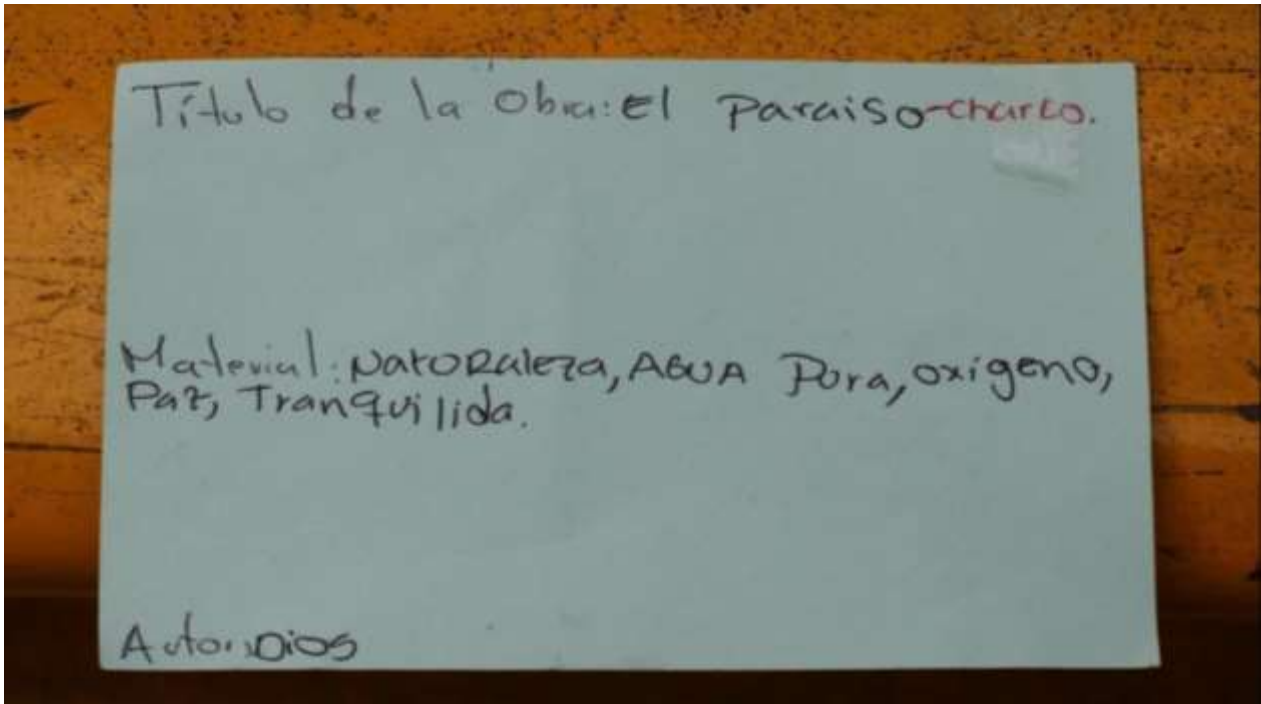 Título de la Obra: El Paraiso-charco.
Material: NatORaleza, AGUA Pura, oxígeno,
Paz, Tranquilida.
Autor: Dios